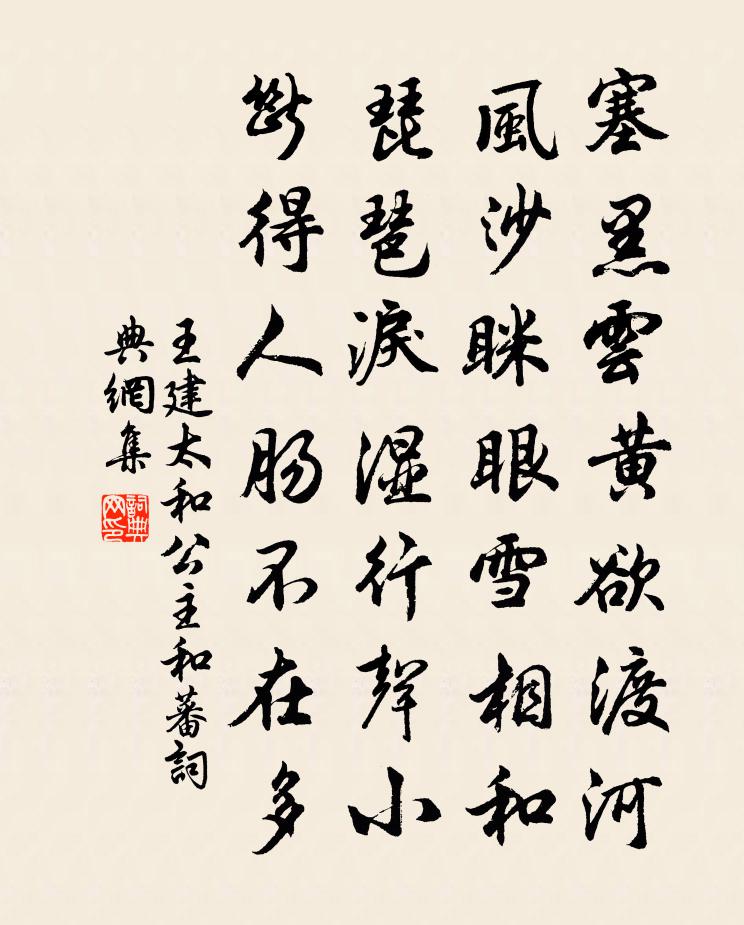 塞黑雲黃欲渡河
風沙眯眼雪相和
琵琶淚濕行聲小
斷得人腸不在多
王建太和公主和蕃詞
典網集
詞典網印